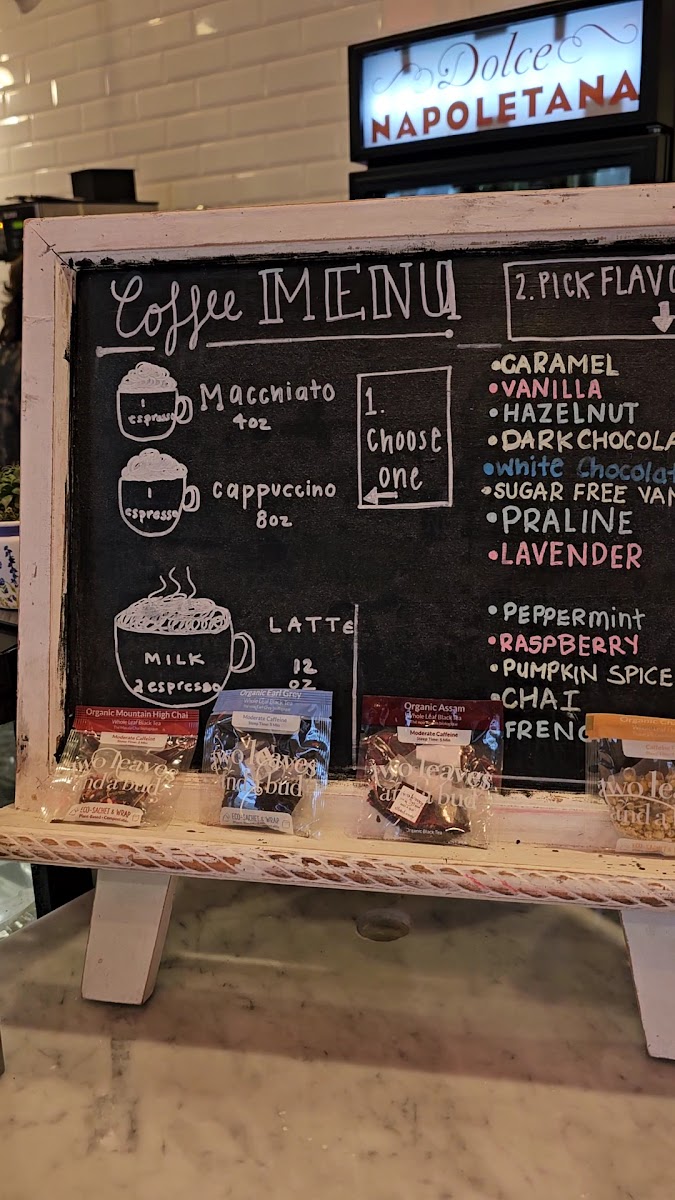 Dolce
NAPOLETANA
Coffee MENU
1
espresso
Macchiato
4oz
1
espresso
cappuccino
8oz
MILK
2 espresso
LATTE
12
oz
1.
choose
one
2. PICK FLAVO
•CARAMEL
•VANILLA
•HAZELNUT
•DARK CHOCOLA
•White Chocolat
•SUGAR FREE VAN
•PRALINE
•LAVENDER
•PEPPERmint
•RASPBERRY
•PUMPKIN SPICE
•CHAI
•FRENC
Organic Mountain High Chai
Whole Leaf Black Tea
Moderate Caffeine
two leaves
and a bud
ECO-SACHET & WRAP
Organic Earl Grey
Whole Leaf Black Tea
Moderate Caffeine
two leaves
and a bud
ECO-SACHET & WRAP
Organic Assam
Whole Leaf Black Tea
Moderate Caffeine
Steep Time: 5 Min.
two leaves
and a bud
Organic Black Tea
Organic
two le
and a